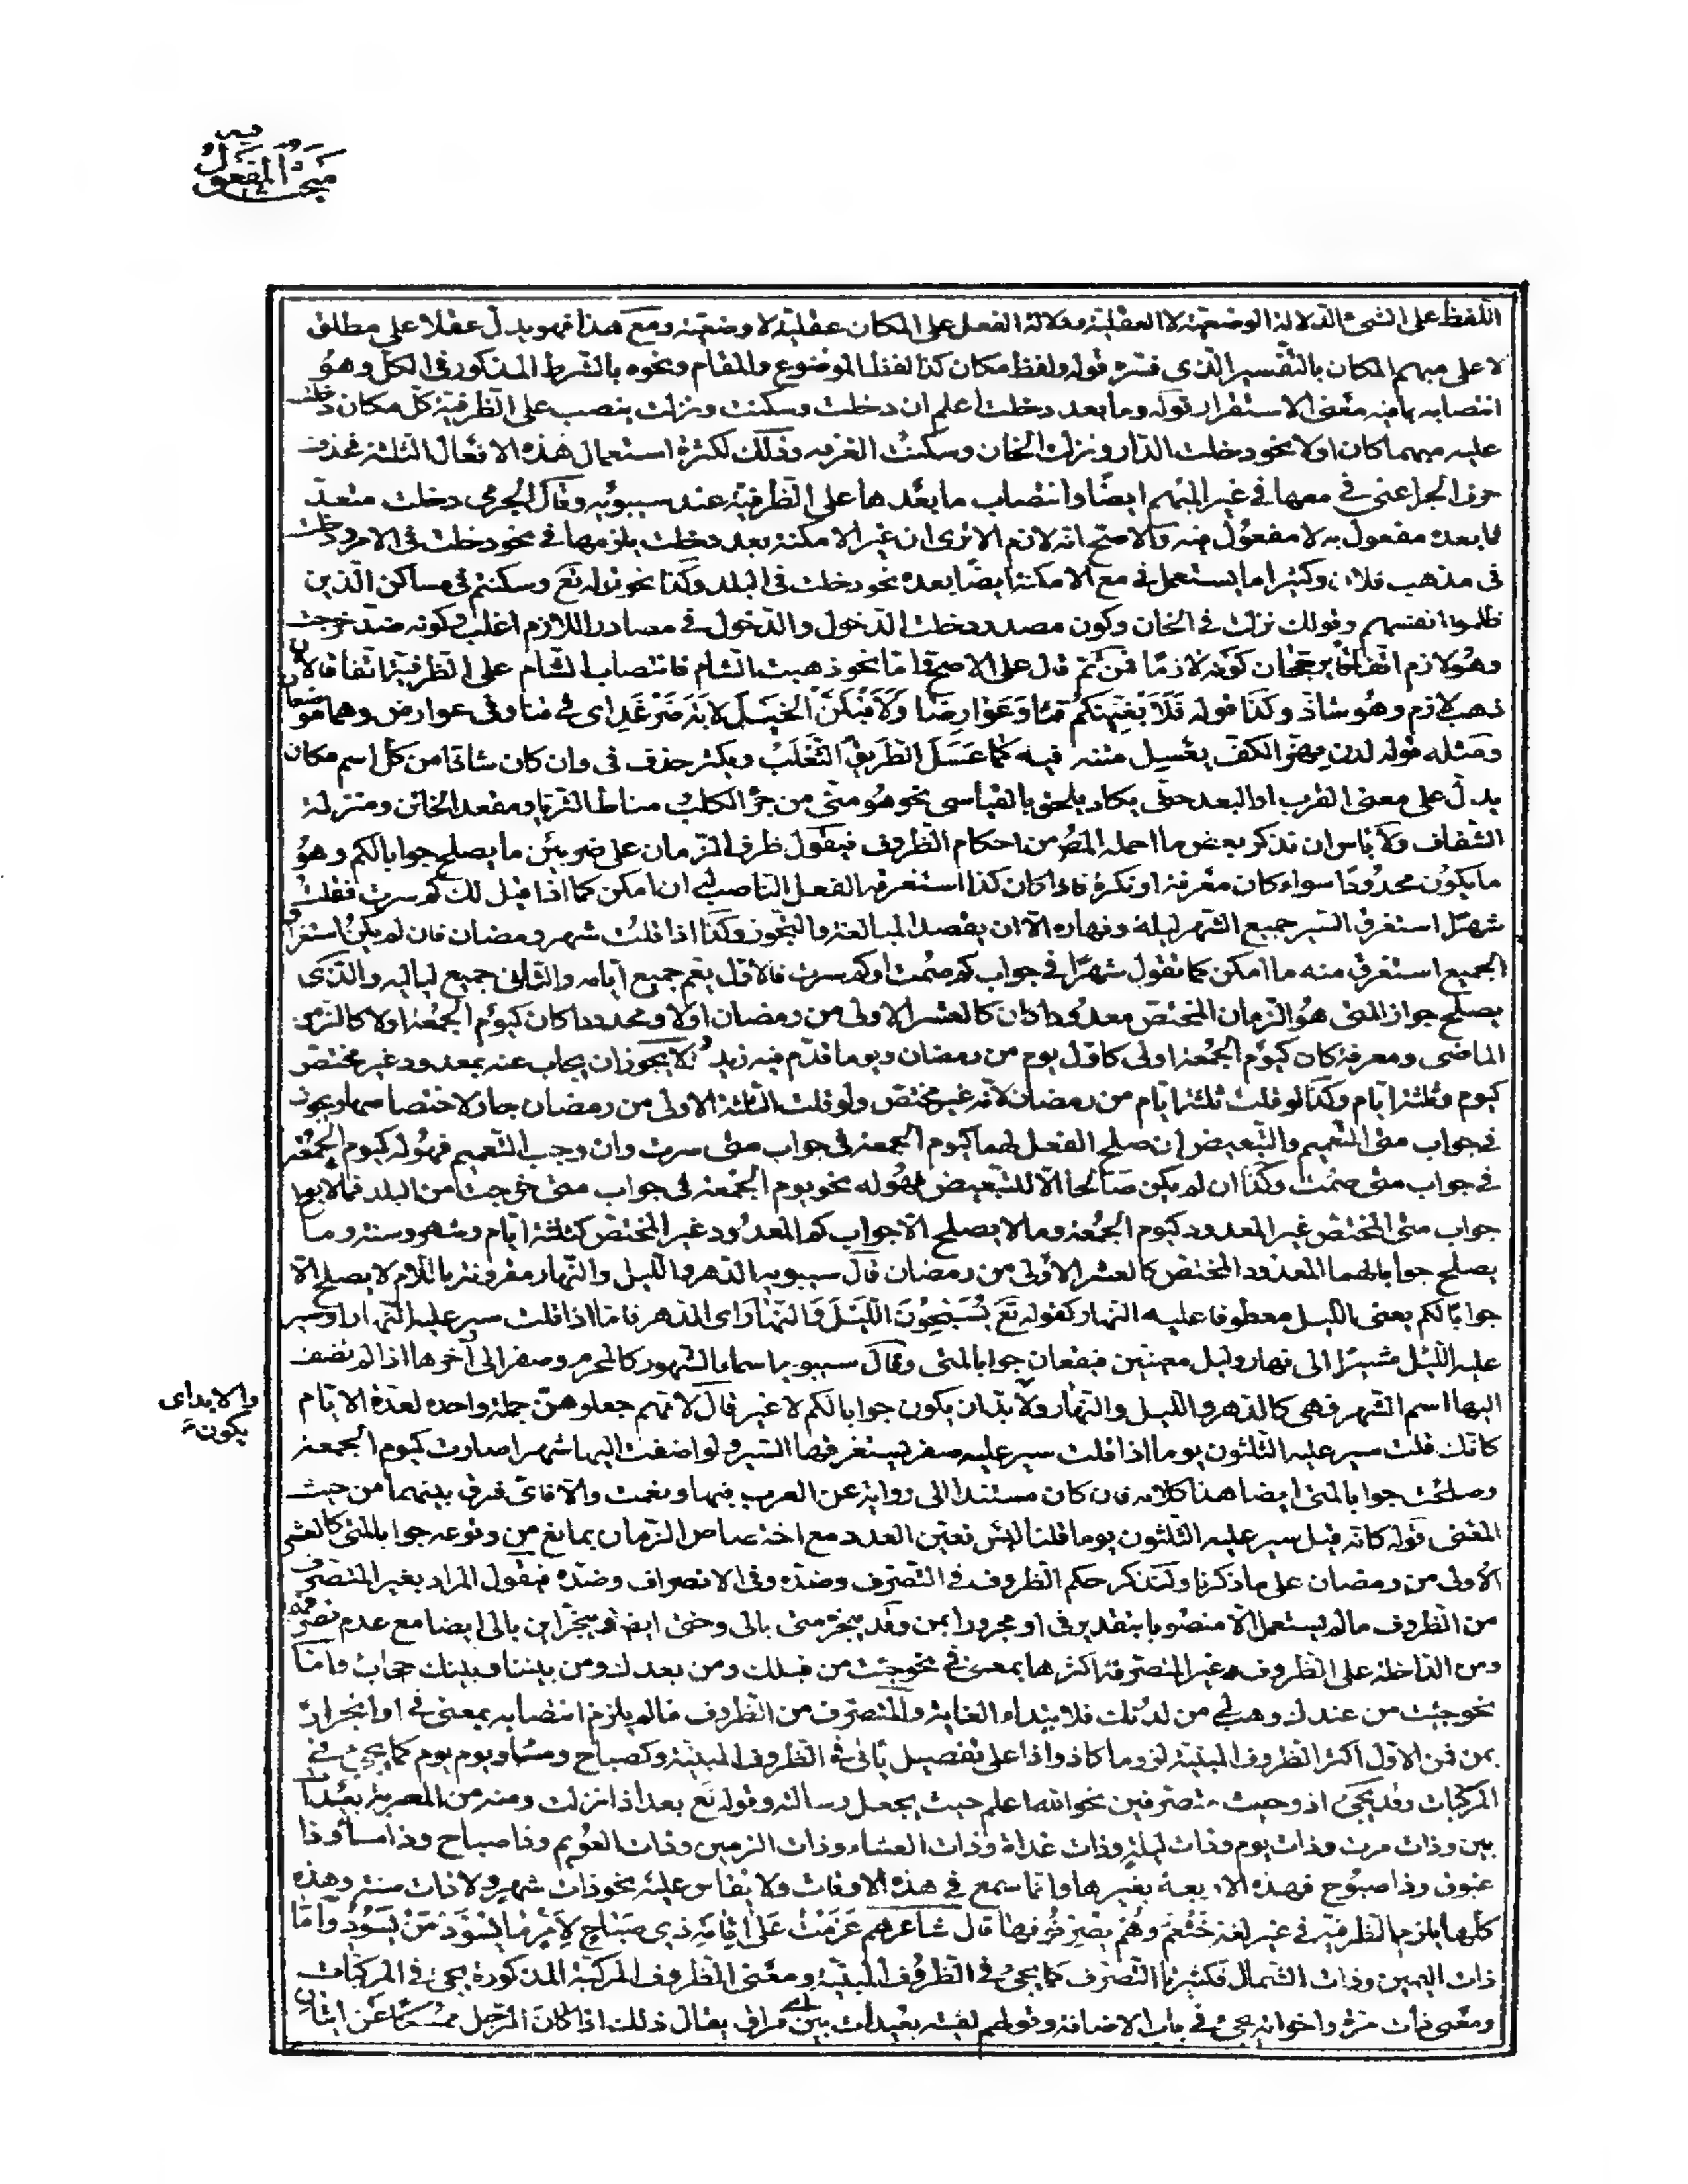 مبحث المفعول فيه
اللفظ على الشئ الدلالة الوضعية لا العقلية ودلالة الفعل على المكان عقلية لا وضعية ومع هذا فهو يدل عقلا على مطلق
لا على مبهم المكان بالتفسير الذى فسره قوله ولفظ مكان كذا لفظ الموضوع والمقام ونحوه بالشرط المذكور فى الكل وهو
انتصابه بما فيه معنى الاستقرار قوله وما بعد دخلت اعلم ان دخلت وسكنت ونزلت ينصب على الظرفية كل مكان دخلت
عليه مبهما كان او لا نحو دخلت الدار ونزلت الخان وسكنت الغرفه وذلك لكثرة استعمال هذه الافعال الثلثة فحذف
حرف الجر اعنى فى معها فى غير المبهم ايضا وانتصاب ما بعدها على الظرفية عند سيبويه وقال الجرمى دخلت متعد
فما بعده مفعول به لا مفعول فيه والاصح انه لازم الا ترى ان غير الامكنة بعد دخلت يلزمها فى نحو دخلت فى الامر ودخلت
فى مذهب فلان وكثيرا ما يستعمل فى مع الامكنة ايضا بعده نحو دخلت فى البلد وكذا نحو قوله تع وسكنتم فى مساكن الذين
ظلموا انفسهم وقولك نزلت فى الخان وكون مصدر دخلت الدخول والدخول فى مصادر اللازم اغلب وكونه ضد خرجت
وهو لازم اتفاقا يرجحان كونه لازما فمن ثم قال على الاصح فاما نحو ذهبت الشام فانتصاب الشام على الظرفية اتفاقا لان
ذهب لازم وهو شاذ وكذا قوله فلابغينكم قنا وعوارضا ولاقبلن الخيل لابة ضرغد اى فى قنا وفى عوارض وهما موضعان
ومثله قوله لدن بهز الكف يعسل متنه فيه كما عسل الطريق الثعلب ويكثر حذف فى وان كان شاذا من كل اسم مكان
يدل على معنى القرب او البعد حتى يكاد يلحق بالقياسى نحو هو منى مزجر الكلب مناط الثريا ومقعد الخاتن ومنزلة
الشغاف ولا باس ان نذكر بعض ما اهمله المص من احكام الظروف فيقول ظرف الزمان على ضربين ما يصلح جوابا لكم وهو
ما يكون محدودا سواء كان معرفة او نكرة فاذا كان كذا استغرقه الفعل الناصب له ان امكن كما اذا قيل لك كم سرت فقلت
شهرا استغرق السير جميع الشهر ليله ونهاره الا ان يقصد المبالغة والتجوز وكذا اذا قلت شهر رمضان فان لم يكن استغراق
الجميع استغرق منه ما امكن كما تقول شهرا فى جواب كم صمت او كم سرت فالاول يعم جميع ايامه والثانى جميع لياليه والذى
يصلح جواز المتى هو الزمان المختص معدودا كان كالعشر الاولى من رمضان او لا ومحدودا كان كيوم الجمعة او لا كالزمن
الماضى ومعرفة كان كيوم الجمعة او لا كاول يوم من رمضان ويوما قدم فيه زيد ولا يجوز ان يجاب عنه بمعدود غير مختص
كيوم وثلثة ايام وكذا لو قلت ثلثة ايام من رمضان لانه غير مختص ولو قلت الثلثة الاولى من رمضان جاز لاختصاصها ويجوز
فى جواب متى التعميم والتبعيض ان صلح الفعل لهما كيوم الجمعة فى جواب متى سرت وان وجب التعميم فهو له كيوم الجمعة
فى جواب متى صمت وكذا ان لم يكن صالحا الا للتبعيض فهو له نحو يوم الجمعة فى جواب متى خرجت من البلد فما لا يقع الا
جواب متى المختص غير المعدود كيوم الجمعة وما لا يصلح الا جواب كم المعدود غير المختص كثلثة ايام وشهر وسنة وما
يصلح جوابا لهما المعدود المختص كالعشر الاولى من رمضان قال سيبويه الدهر والليل والنهار مقرونة باللام لا يصلح الا
جوابا لكم يعنى الليل معطوفا عليه النهار كقوله تع يسبحون الليل والنهار اى الدهر فاما اذا قلت سير عليه النهار او سير
عليه الليل مشيرا الى نهار وليل معينين فيقعان جوابا لمتى وقال سيبويه اسماء الشهور كالمحرم وصفر الى آخرها اذا لم تضف
اليها اسم الشهر فهى كالدهر والليل والنهار ولا بد ان يكون جوابا لكم لا غير قال لانهم جعلوهن جملة واحده لعدة الايام
كانك قلت سير عليه الثلثون يوما اذا قلت سير عليه صفر يستغرقها السير ولو اضفت اليها شهرا صارت كيوم الجمعة
وصلحت جوابا لمتى ايضا هذا كلامه فان كان مستندا الى رواية عن العرب فبها ونعمت والا فاى فرق بينهما من حيث
المعنى قوله كانه قيل سير عليه الثلثون يوما قلنا ليس تعين العدد مع اختصاص الزمان بمانع من وقوعه جوابا لمتى كالعشر
الاولى من رمضان على ما ذكرنا ولنذكر حكم الظروف فى التصرف وضده وفى الانصراف وضده فنقول المراد بغير المتصرف
من الظروف ما لم يستعمل الا منصوبا بتقدير فى او مجرورا بمن وقد ينجر متى بالى وحتى ايض وينجر اين بالى ايضا مع عدم تصرفه
ومن الداخلة على الظروف غير المتصرفة اكثرها بمعنى فى نحو جئت من قبلك ومن بعدك ومن بيننا وبينك حجاب واما
نحو جئت من عندك وهب لى من لدنك فلابتداء الغاية والمتصرف من الظروف ما لم يلزم انتصابه بمعنى فى او انجراره
بمن فمن الاول اكثر الظروف المبنية لزوما كاذ واذا على تفصيل ياتى فى الظروف المبنية وكصباح ومساء ويوم يوم كما يجئ فى
المركبات وقد يجئ اذ وحيث متصرفين نحو الله اعلم حيث يجعل رسالته وقوله تع بعد اذ انزلت ومنه من المعربة بعيدات
بين وذات مرت وذات يوم وذات ليلة وذات غداة وذات العشاء وذات الزمين وذات العويم وذا صباح وذا مساء وذا
غبوق وذا صبوح فهذه الاربعة بغير ها وانما سمع فى هذه الاوقات ولا يقاس عليه نحو ذات شهر ولا ذات سنة وهذه
كلها يلزمها الظرفية فى غير لغة خثعم وهم يصرفونها قال شاعرهم عزمت على اقامة ذى صباح لامر ما يسود من يسود واما
ذات اليمين وذات الشمال فكثيرا التصرف كما يجئ فى الظروف المبنية ومعنى الظروف المركبة المذكورة يجئ فى المركبات
ومعنى ذات مرة واخواته يجئ فى باب الاضافة وقولهم لقيته بعيدات بين اى فراق يقال ذلك اذا كان الرجل ممسكا عن اتيان
والا بد اى
يكون